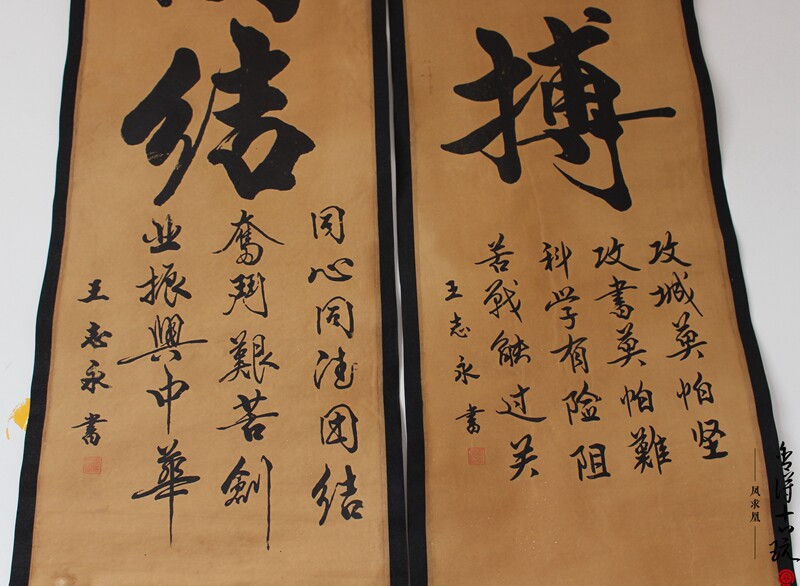 搏
攻城莫怕坚
攻書莫怕難
科学有险阻
苦戰能过关
王志永書
结
同心同德团结
奮鬥艱苦創
业振興中華
王志永書
舍得古玩
凤求凰